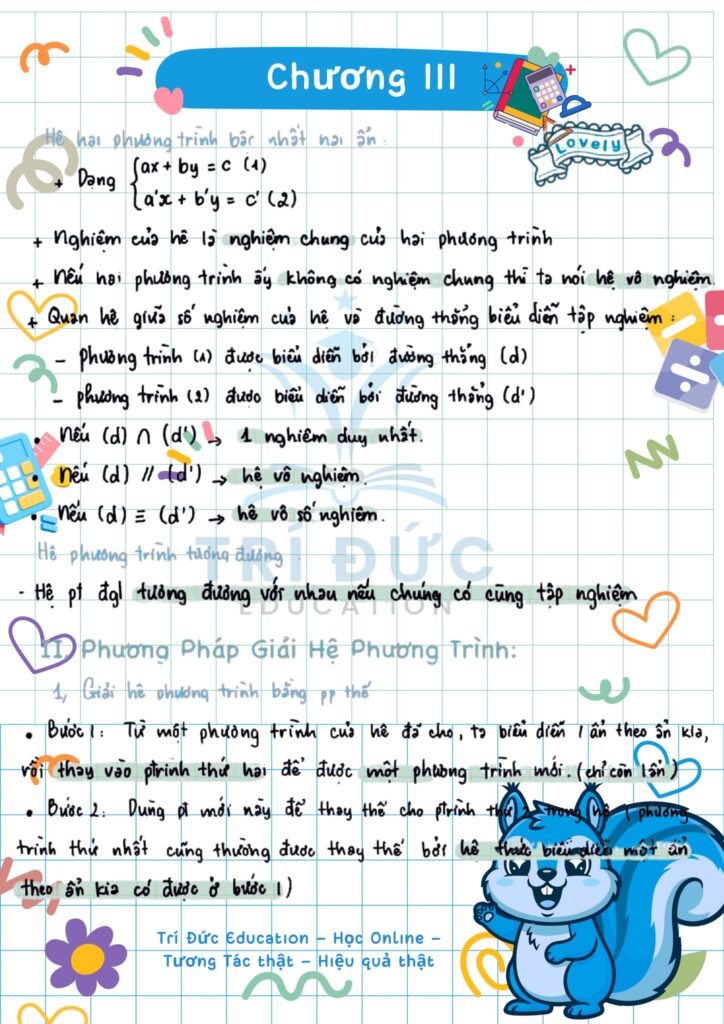 Chương III
Lovely
Hệ hai phương trình bậc nhất hai ẩn:
+ Dạng { ax + by = c (1)
a'x + b'y = c' (2)
+ Nghiệm của hệ là nghiệm chung của hai phương trình
+ Nếu hai phương trình ấy không có nghiệm chung thì ta nói hệ vô nghiệm.
+ Quan hệ giữa số nghiệm của hệ và đường thẳng biểu diễn tập nghiệm:
– Phương trình (1) được biểu diễn bởi đường thẳng (d)
– phương trình (2) được biểu diễn bởi đường thẳng (d')
• Nếu (d) ∩ (d') → 1 nghiệm duy nhất.
• Nếu (d) // (d') → hệ vô nghiệm.
• Nếu (d) ≡ (d') → hệ vô số nghiệm.
Hệ phương trình tương đương.
TRÍ ĐỨC
- Hệ pt đgl tương đương với nhau nếu chúng có cùng tập nghiệm
EDUCATION
II. Phương Pháp Giải Hệ Phương Trình:
1, Giải hệ phương trình bằng pp thế
• Bước 1: Từ một phương trình của hệ đã cho, ta biểu diễn 1 ẩn theo ẩn kia,
rồi thay vào ptrình thứ hai để được một phương trình mới. (chỉ còn 1 ẩn)
• Bước 2: Dùng pt mới này để thay thế cho ptrình thứ 2 trong hệ (phương
trình thứ nhất cũng thường được thay thế bởi hệ thức biểu diễn một ẩn
theo ẩn kia có được ở bước 1)
Trí Đức Education – Học Online –
Tương Tác thật – Hiệu quả thật